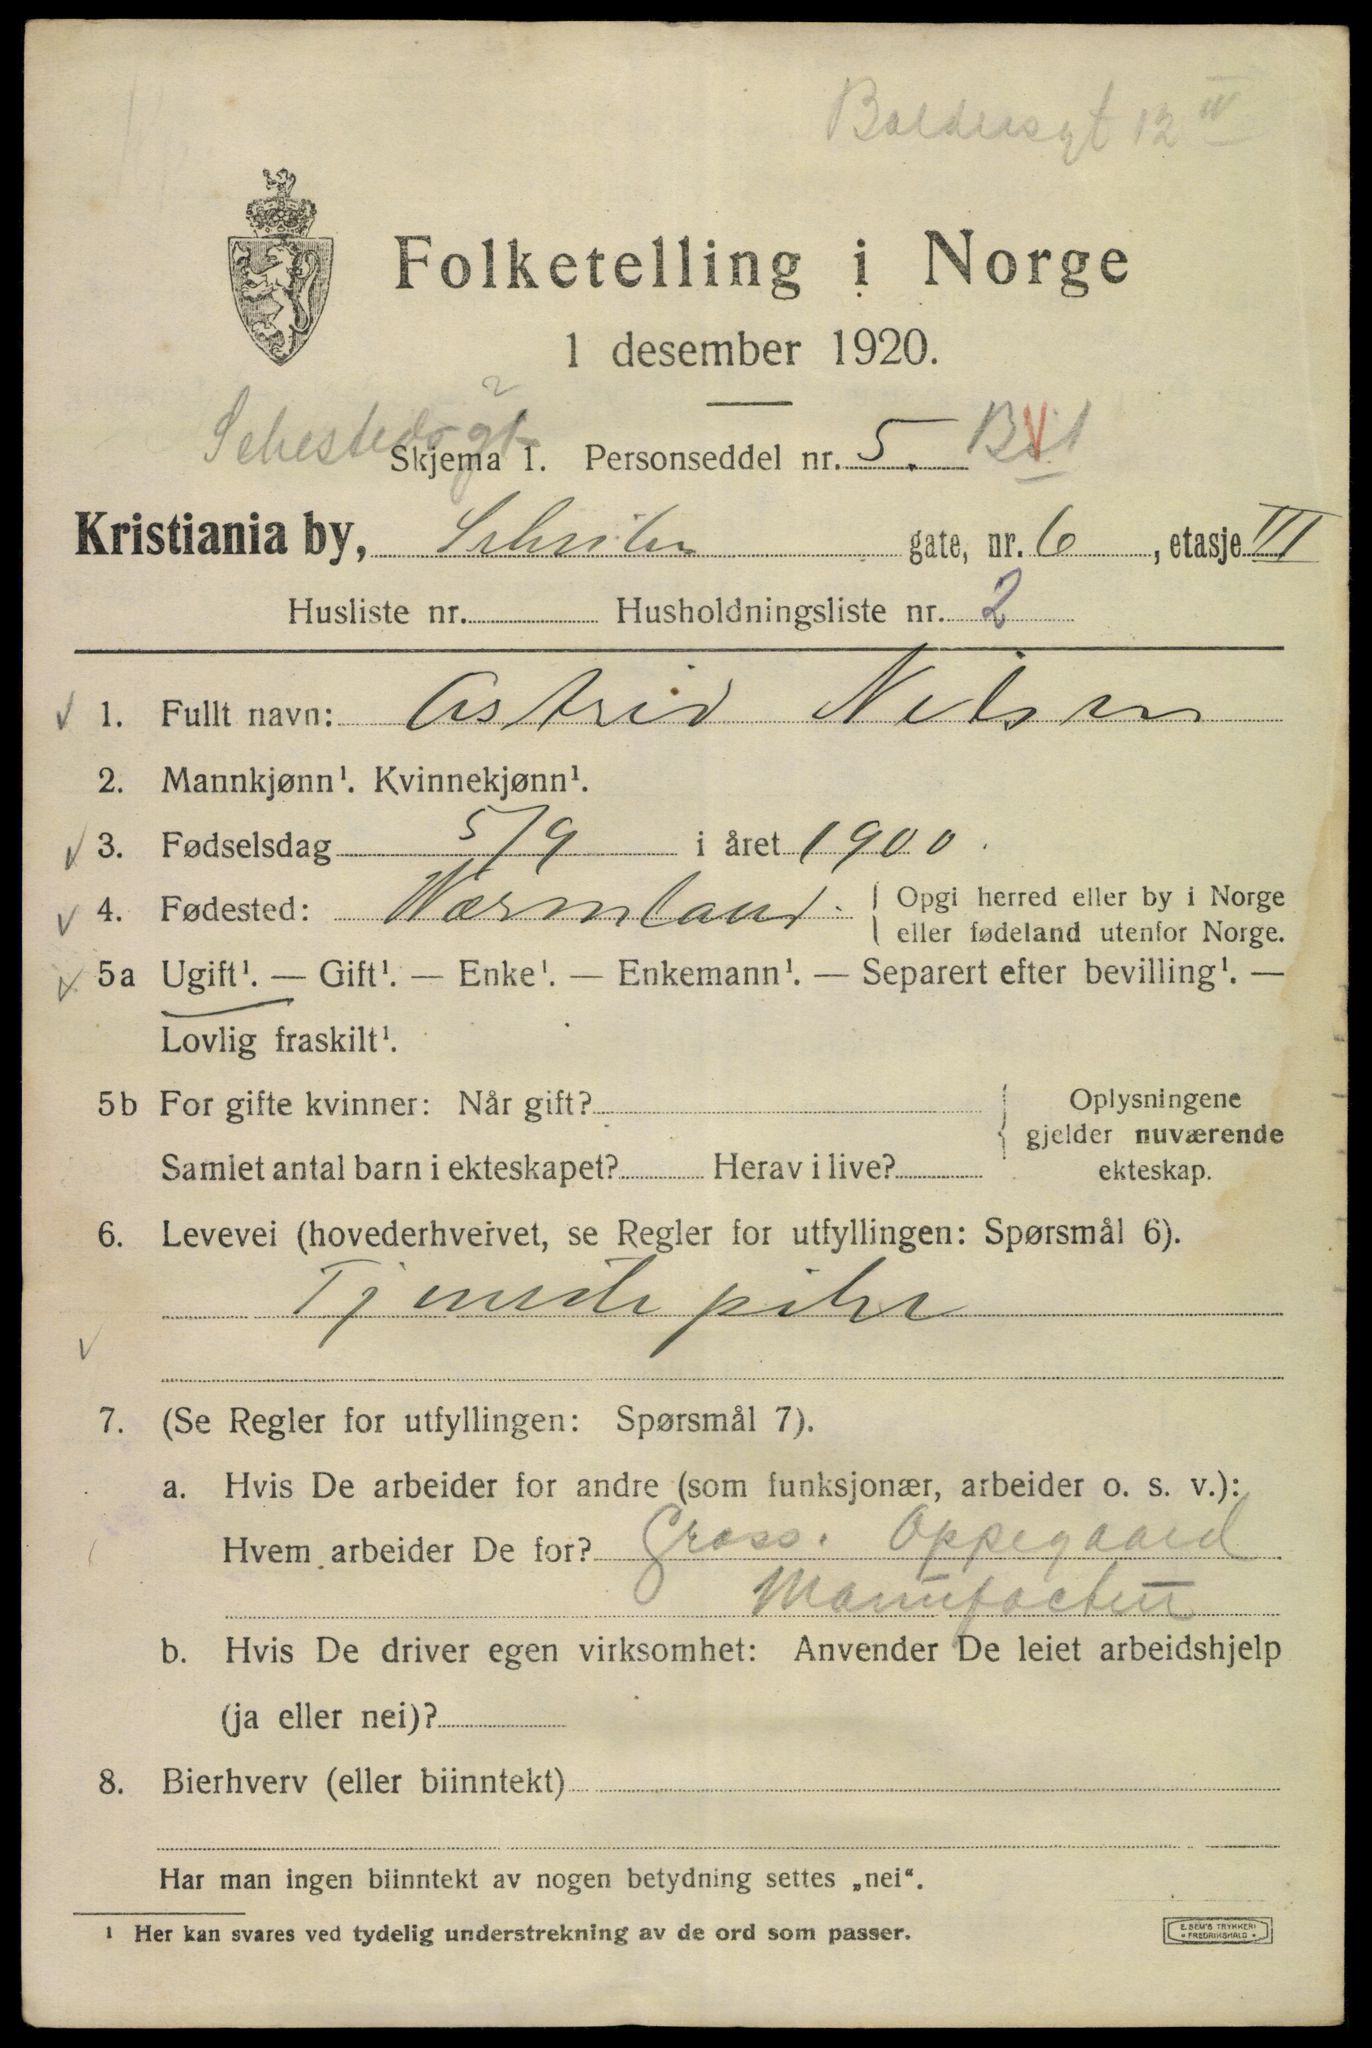 Baldersgt 12 IV
Folketelling i Norge
1 desember 1920.
Sehestedsgt 2
Skjema 1. Personseddel nr. 5.
Kristiania by, gate, nr. 6, etasje VII
Husliste nr. Husholdningsliste nr. 2
1. Fullt navn: Astrid Nilsen
2. Mannkjønn¹. Kvinnekjønn¹.
3. Fødselsdag 5/9 i året 1900.
4. Fødested: Wærmland. Opgi herred eller by i Norge
eller fødeland utenfor Norge.
5a Ugift¹. — Gift¹. — Enke¹. — Enkemann¹. — Separert efter bevilling¹. —
Lovlig fraskilt¹.
5b For gifte kvinner: Når gift?
Samlet antal barn i ekteskapet? Herav i live?
Oplysningene
gjelder nuværende
ekteskap.
6. Levevei (hovederhvervet, se Regler for utfyllingen: Spørsmål 6).
Tjenestepike
7. (Se Regler for utfyllingen: Spørsmål 7).
a. Hvis De arbeider for andre (som funksjonær, arbeider o. s. v.):
Hvem arbeider De for? Gross. Oppegaard
Manufactur
b. Hvis De driver egen virksomhet: Anvender De leiet arbeidshjelp
(ja eller nei)?
8. Bierhverv (eller biinntekt)
Har man ingen biinntekt av nogen betydning settes „nei“.
¹ Her kan svares ved tydelig understrekning av de ord som passer.
E. SEM'S TRYKKERI
FREDRIKSHALD